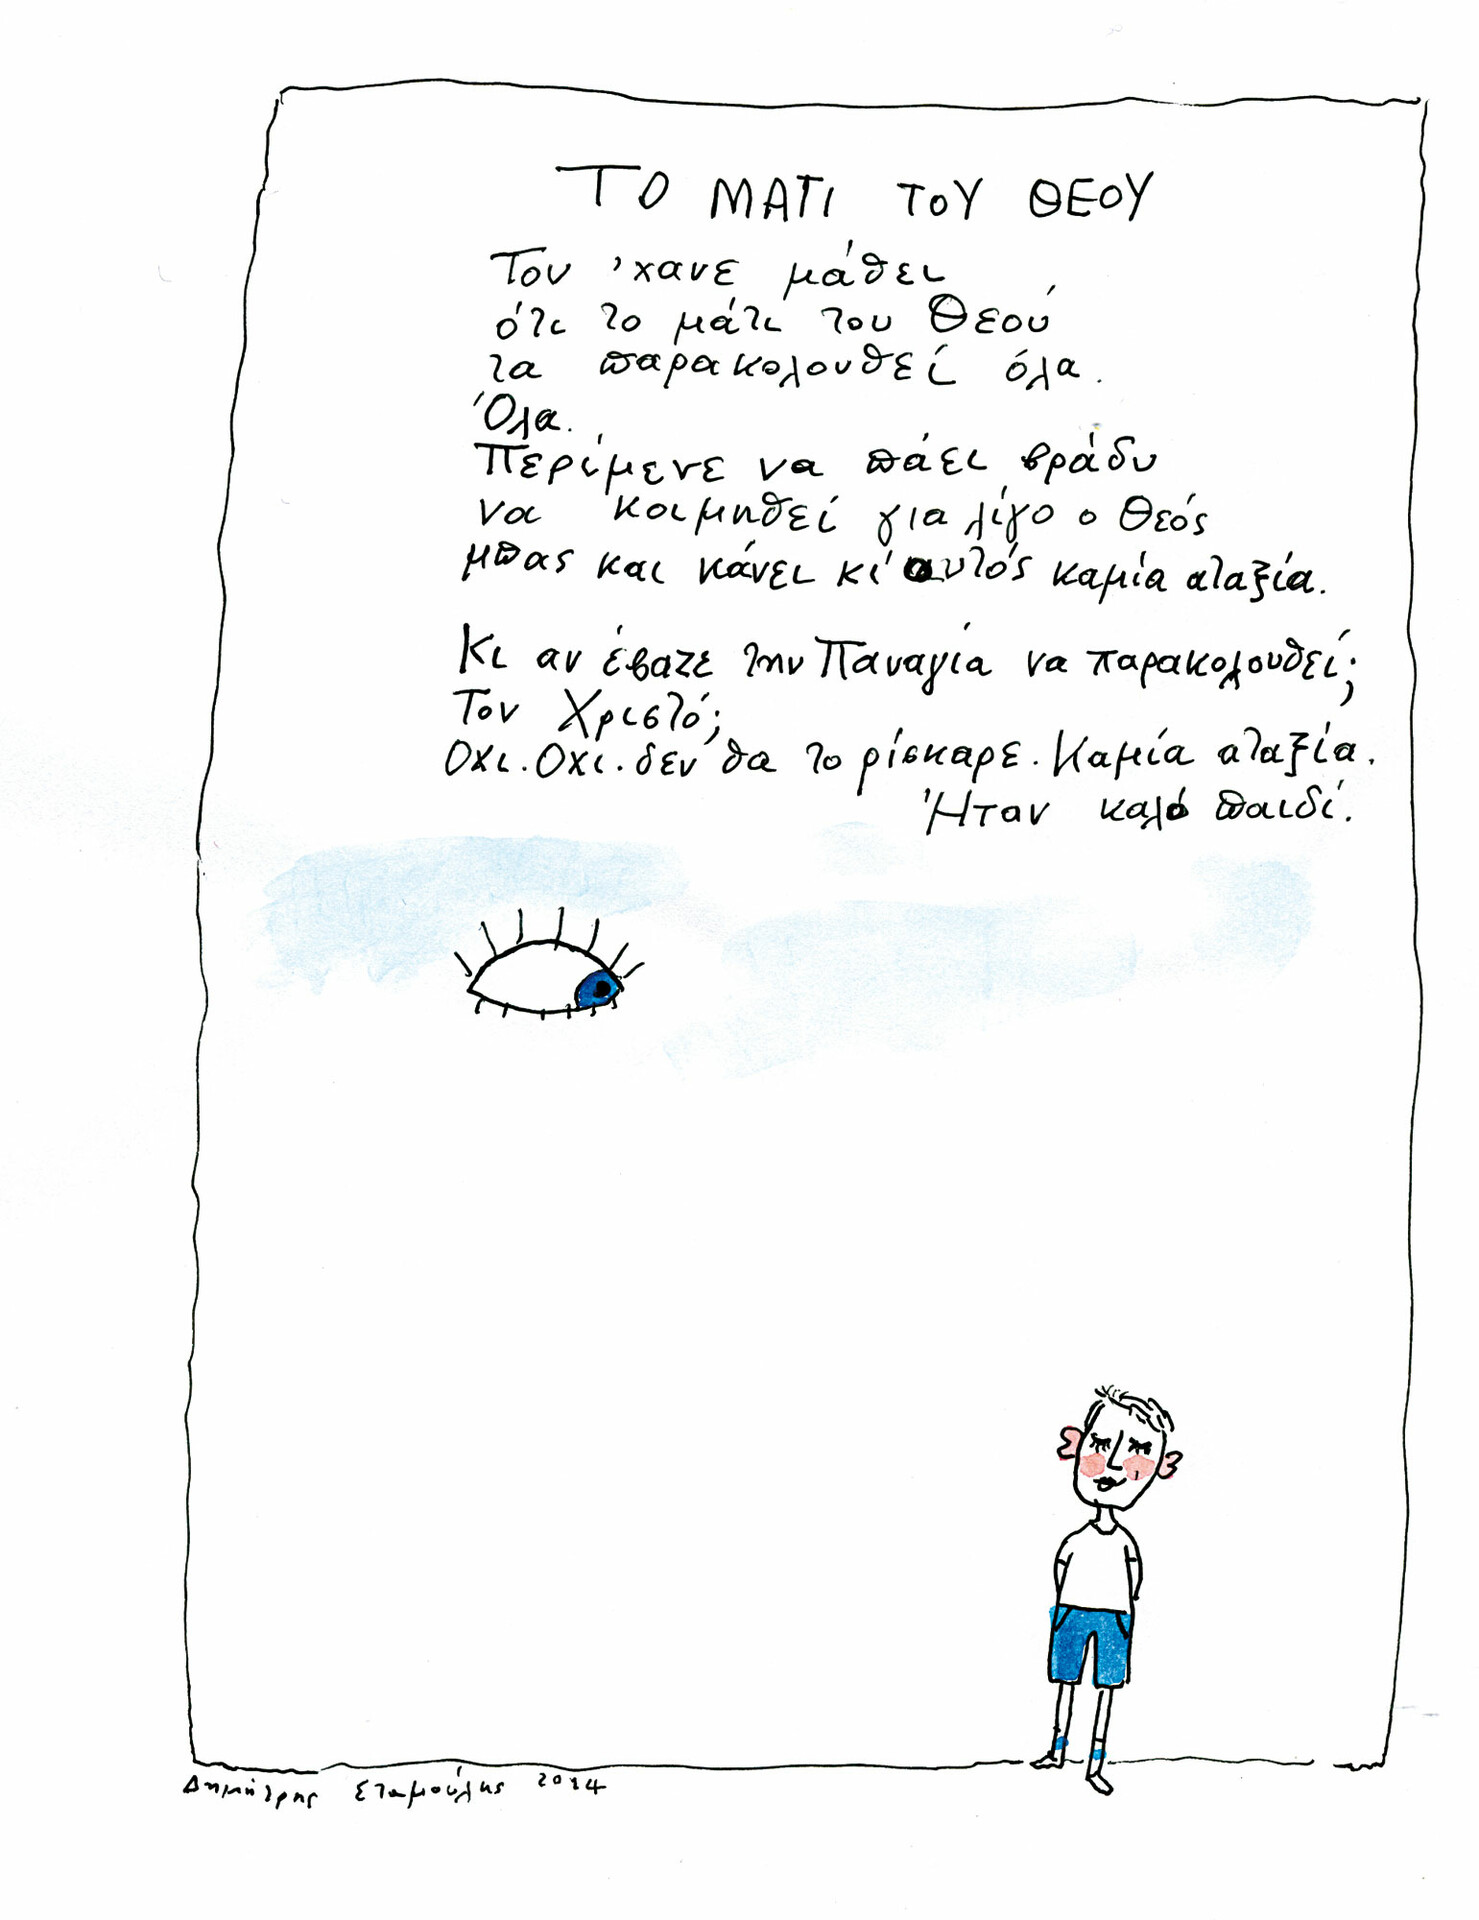 ΤΟ ΜΑΤΙ ΤΟΥ ΘΕΟΥ
Του 'χανε μάθει
ότι το μάτι του Θεού
τα παρακολουθεί όλα.
Όλα.
Περίμενε να πάει βράδυ
να κοιμηθεί για λίγο ο Θεός
μπας και κάνει κι' αυτός καμία αταξία.
Κι αν έβαζε την Παναγία να παρακολουθεί;
Τον Χριστό;
Οχι. Οχι. δεν θα το ρίσκαρε. Καμία αταξία.
Ήταν καλό παιδί.
Δημήτρης Σταμούλης 2024